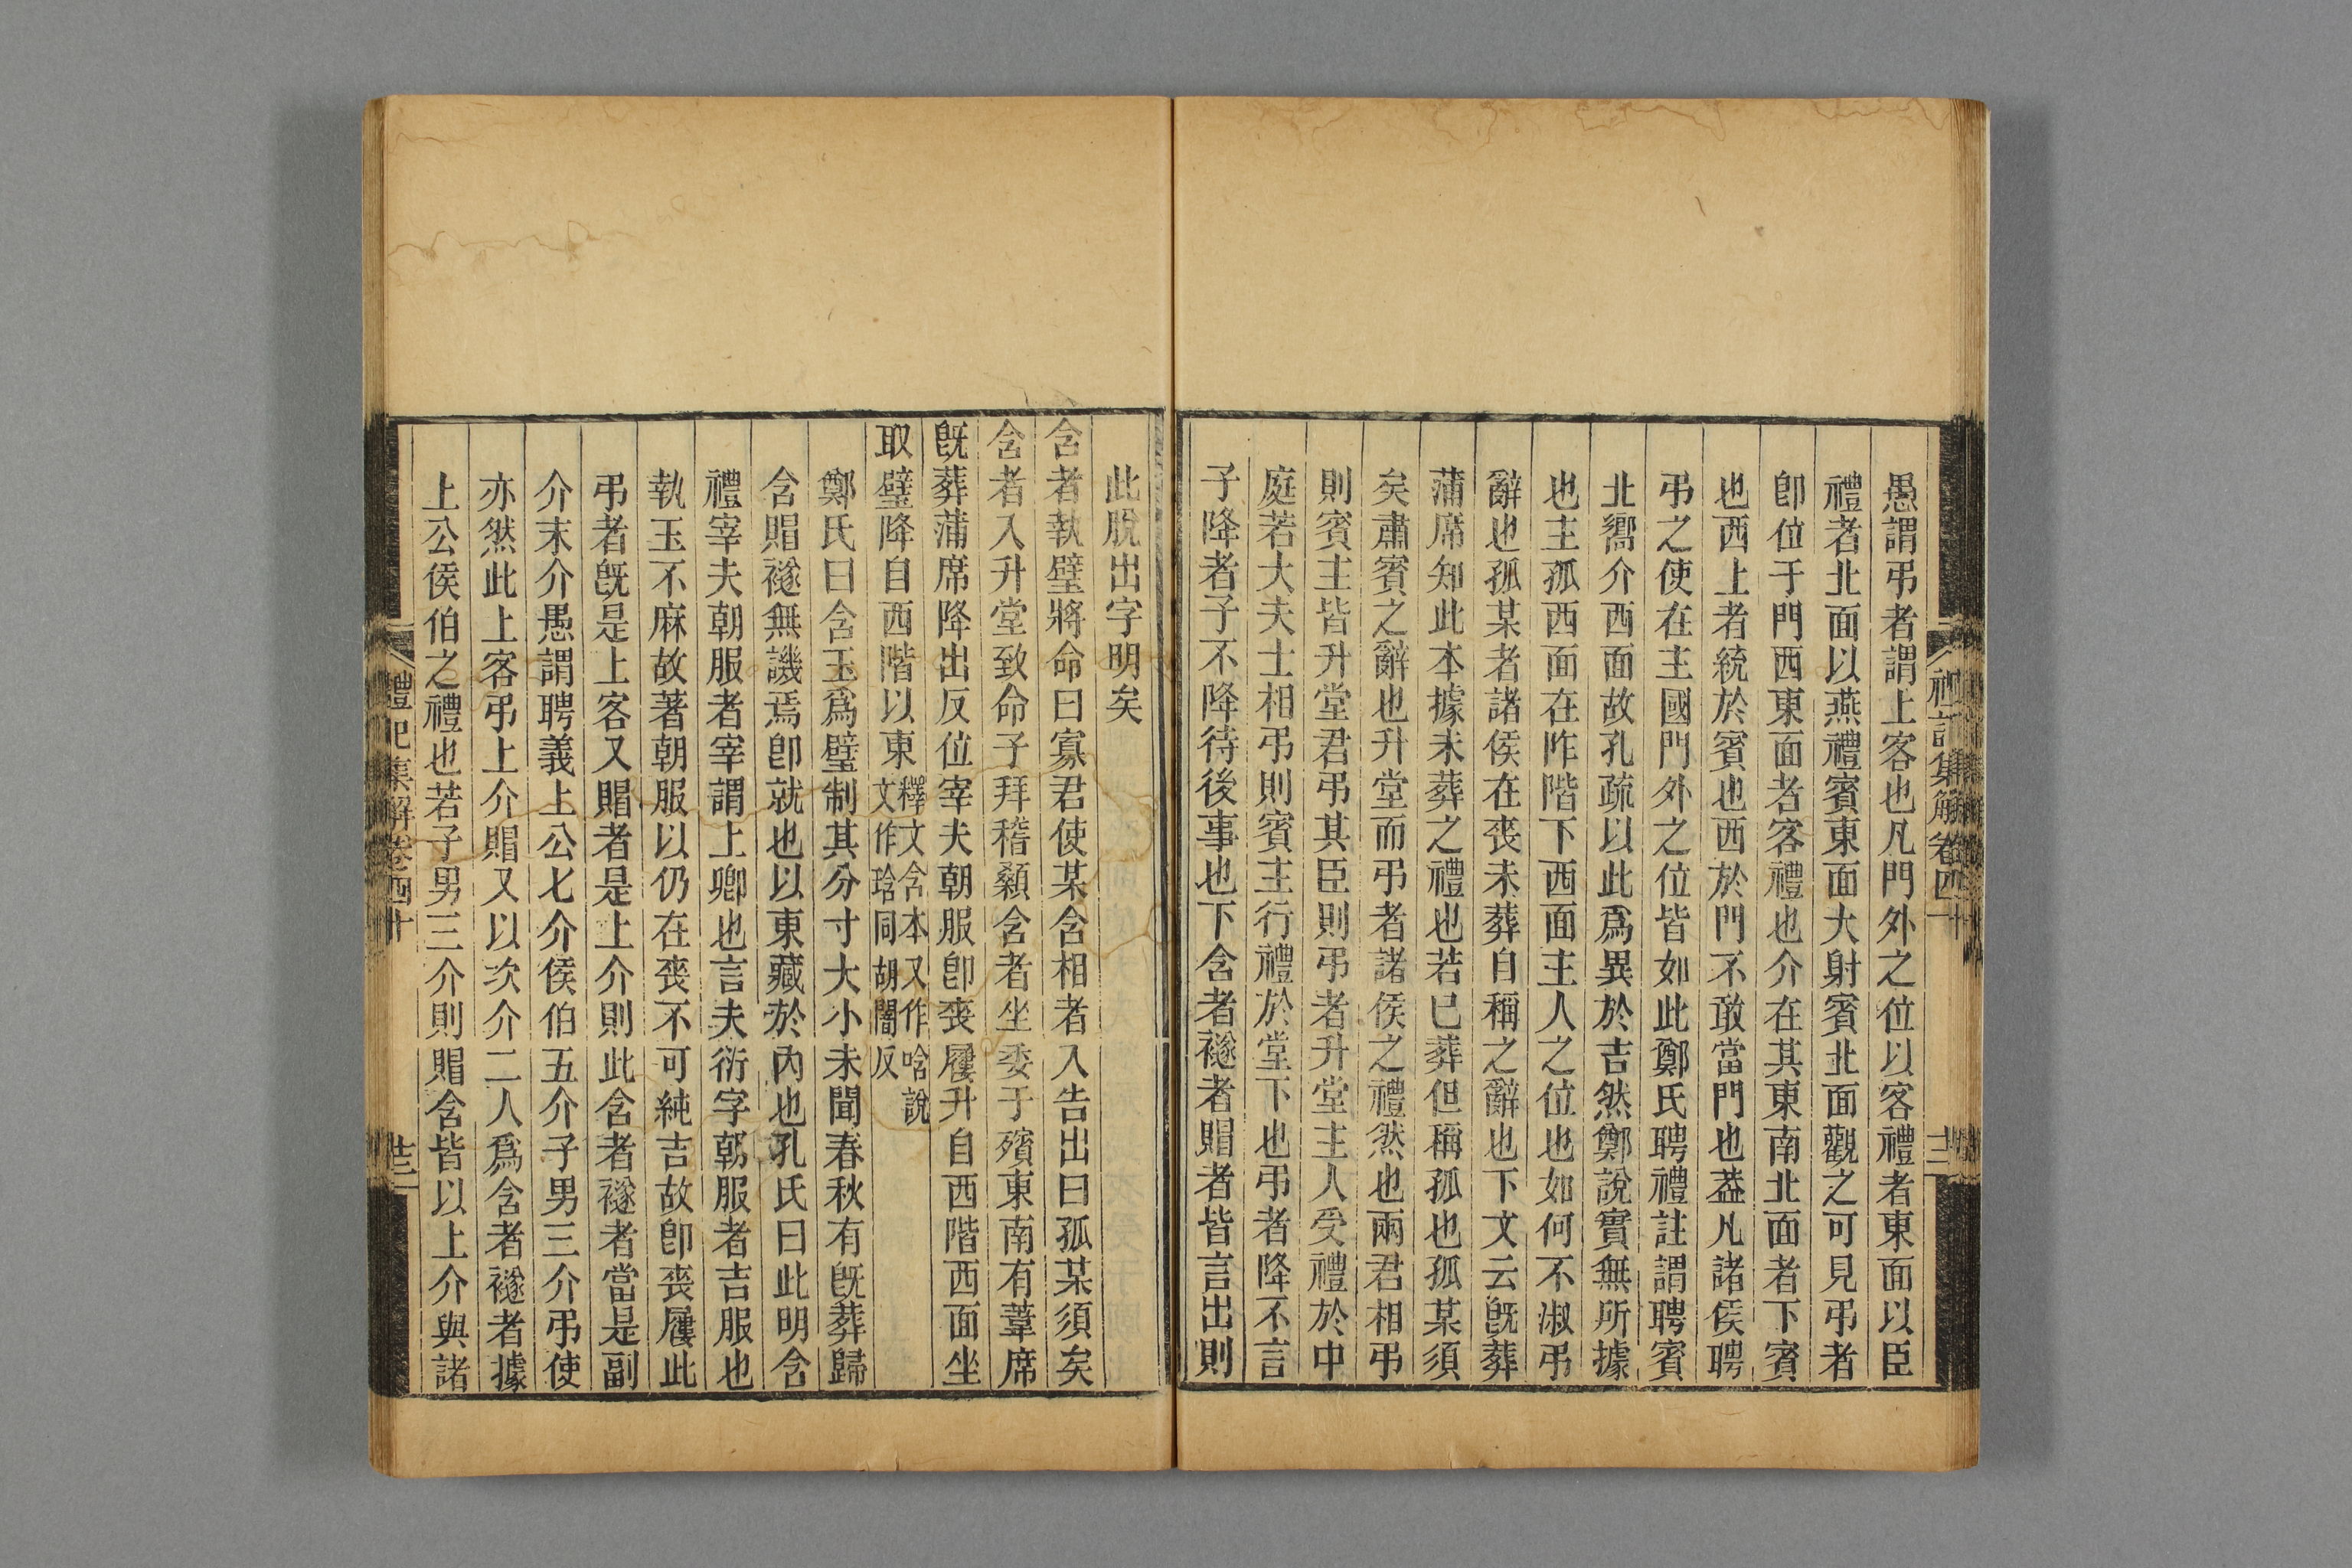 愚謂弔者謂上客也凡門外之位以客禮者東面以臣
禮者北面以燕禮賓東面大射賓北面觀之可見弔者
卽位于門西東面者客禮也介在其東南北面者下賓
也西上者統於賓也西於門不敢當門也葢凡諸侯聘
弔之使在主國門外之位皆如此鄭氏聘禮註謂聘賓
北嚮介西面故孔疏以此爲異於吉然鄭說實無所據
也主孤西面在阼階下西面主人之位也如何不淑弔
辭也孤某者諸侯在喪未葬自稱之辭也下文云旣葬
蒲席知此本據未葬之禮也若已葬但稱孤也孤某須
矣肅賓之辭也升堂而弔者諸侯之禮然也兩君相弔
則賓主皆升堂君弔其臣則弔者升堂主人受禮於中
庭若大夫士相弔則賓主行禮於堂下也弔者降不言
子降者子不降待後事也下含者襚者賵者皆言出則
此脫出字明矣
含者執璧將命曰寡君使某含相者入告出曰孤某須矣
含者入升堂致命子拜稽顙含者坐委于殯東南有葦席
旣葬蒲席降出反位宰夫朝服卽喪屨升自西階西面坐
取璧降自西階以東釋文含本又作唅說文作琀同胡闇反
鄭氏曰含玉爲璧制其分寸大小未聞春秋有旣葬歸
含賵襚無譏焉卽就也以東藏於內也孔氏曰此明含
禮宰夫朝服者宰謂上卿也言夫衍字朝服者吉服也
執玉不麻故著朝服以仍在喪不可純吉故卽喪屨此
弔者旣是上客又賵者是上介則此含者襚者當是副
介末介愚謂聘義上公七介侯伯五介子男三介弔使
亦然此上客弔上介賵又以次介二人爲含者襚者據
上公侯伯之禮也若子男三介則賵含皆以上介與諸
禮記集解卷四十